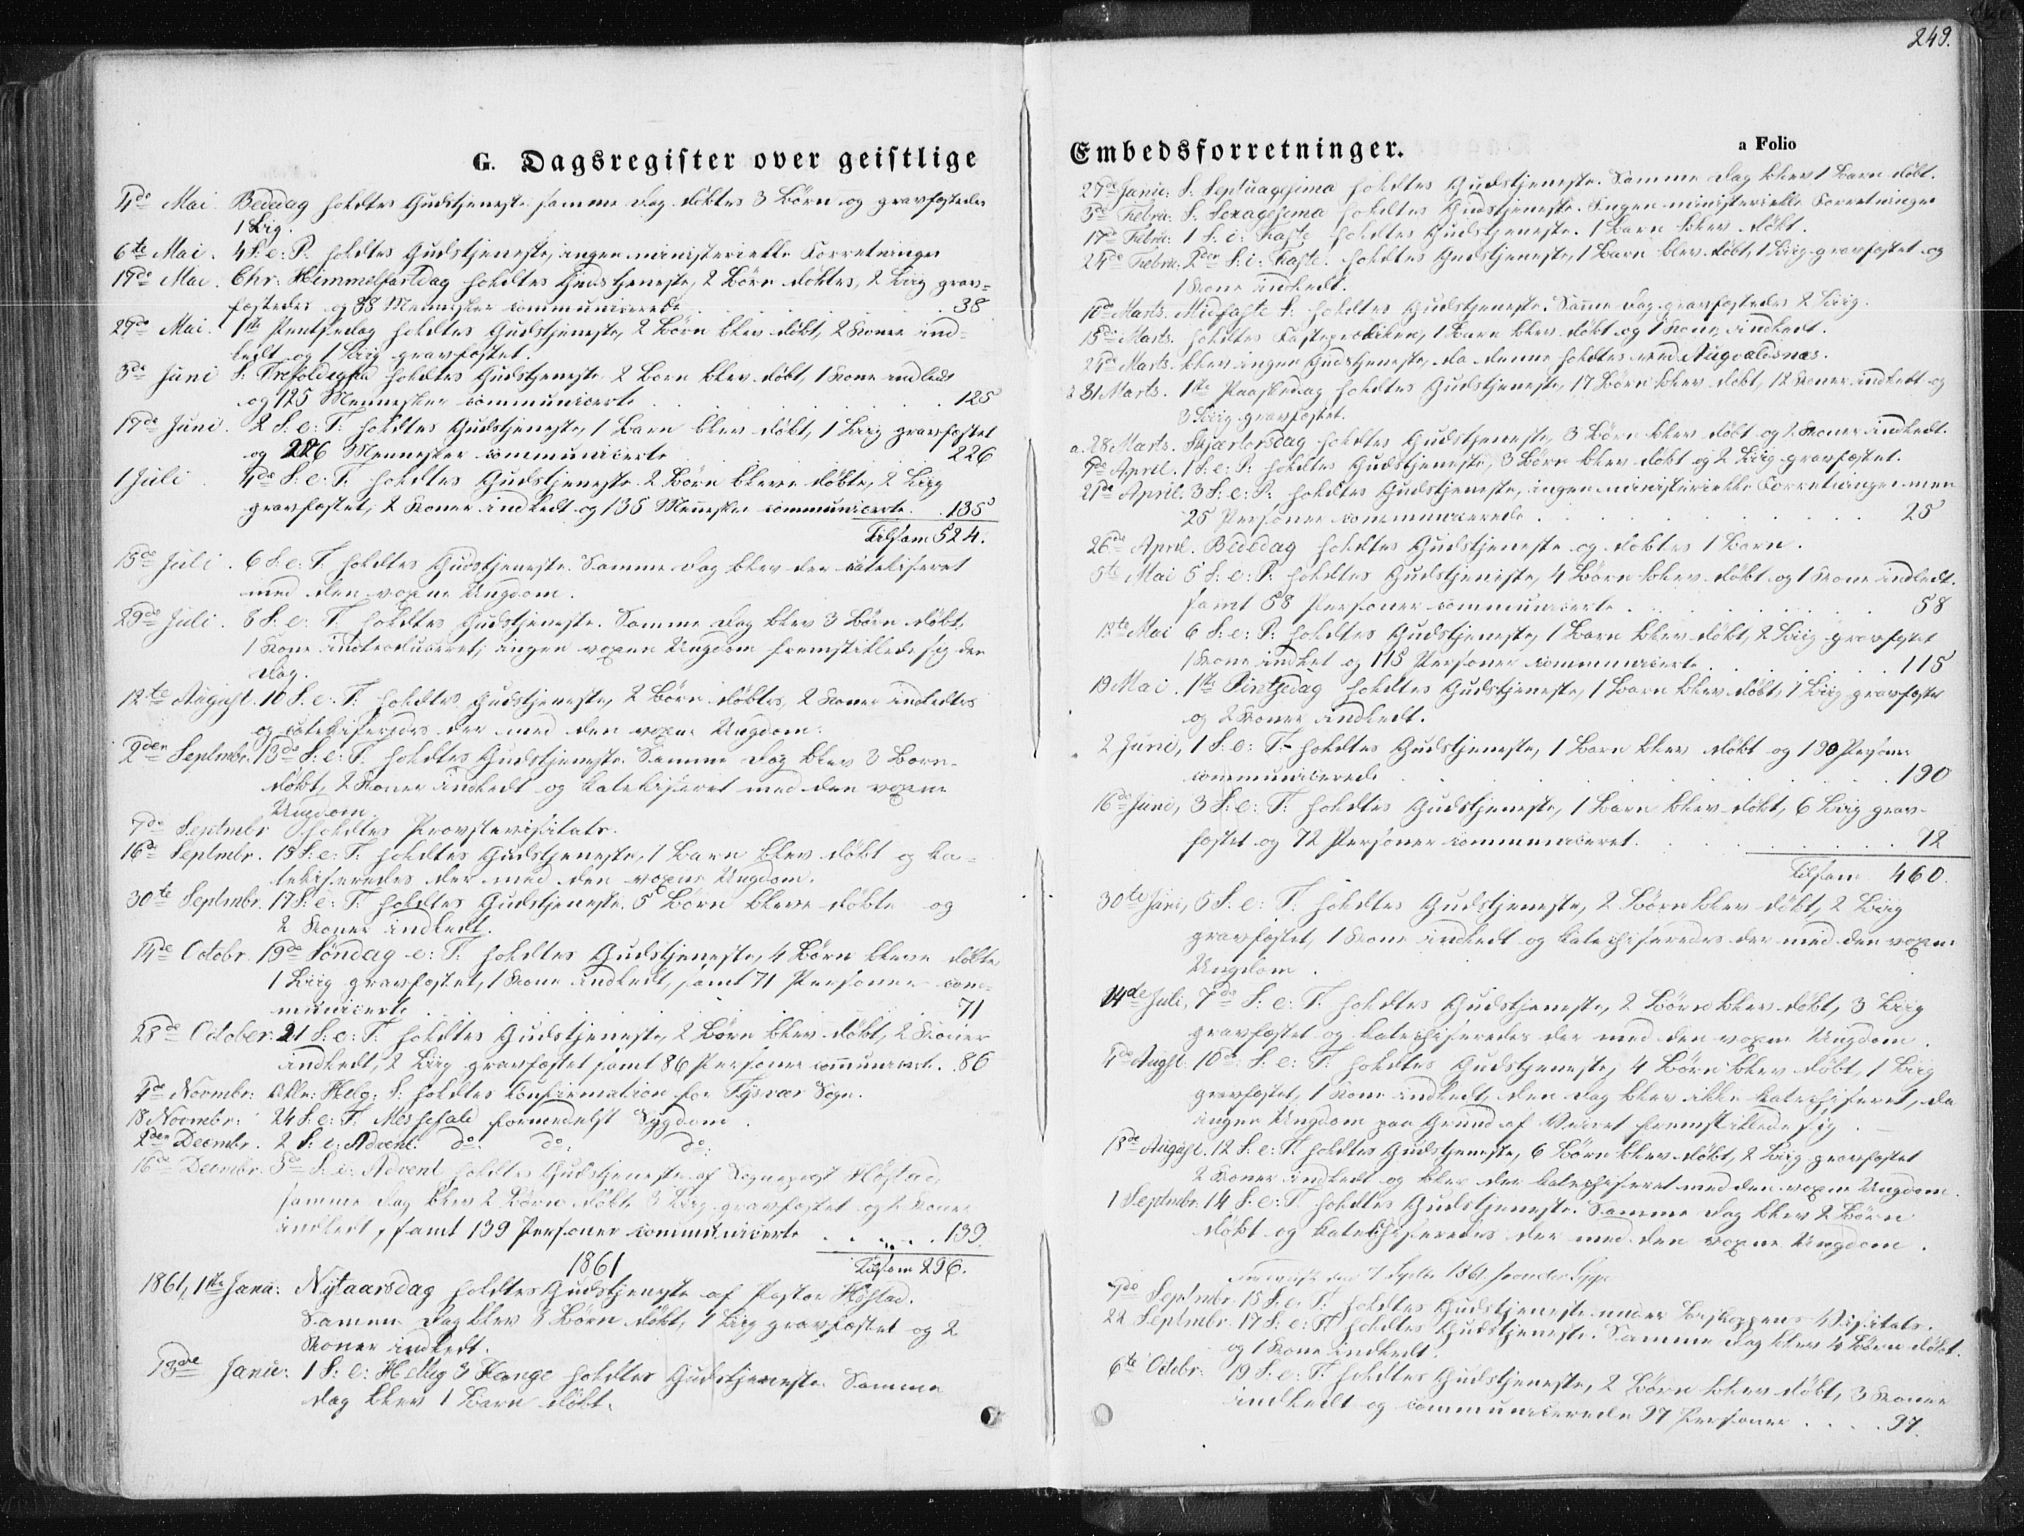 G. Dagsregister over geistlige
4de Mai Bededag holdtes Gudstjeneste samme Dag døbtes 3 Børn og gravfæstedes
1 Liig.
6te Mai. 4 S. e. P. holdtes Gudstjeneste, ingen ministerielle Forretninger
17de Mai. Chr. Himmelfarsdag holdtes Gudstjeneste, 2 Børn døbtes, 2 Liig grav-
fæstedes og 38 Mennesker communicerede . . . 38
27de Mai. 1ste Pentsedag holdtes Gudstjeneste, 2 Børn blev døbt, 2 Koner ind-
ledt og 1 Liig gravfæstet.
3de Juni S. Trefoldighed holdtes Gudstjeneste 2 Børn blev døbt, 1 Kone indledt
og 125 Mennesker communicerte . . . 125
17de Juni. 2 S. e. T. holdtes Gudstjeneste, 1 Barn blev døbt, 1 Liig gravfæstet
og 226 Mennesker communicerte . . . 226
1 Juli 4de S. e. T. holdtes Gudstjeneste 2 Børn bleve døbte, 2 Liig
gravfæstet, 2 Koner indledt og 135 Mennesker communicerte. . 135
Tilsam 524.
15de Juli. 6 S. e. T. holdtes Gudstjeneste. Samme Dag blev der catekiseret
med den voxne Ungdom.
29de Juli. 8 S. e. T. holdtes Gudstjeneste. Samme Dag blev 3 Børn døbt,
1 Kone introduceret; ingen voxen Ungdom fremstillede sig den
Dag.
12te August. 10 S. e. T. holdtes Gudstjeneste, 2 Børn døbtes, 2 Koner indledtes
og catekiseredes der med den voxne Ungdom.
2den Septmbr. 13de S. e. T. holdtes Gudstjeneste. Samme Dag blev 3 Børn
døbt, 2 Koner indledt og katekiseret med den voxne
Ungdom.
7de Septmbr holdtes Provstevisitats.
16de Septmbr. 15 S. e. T. holdtes Gudstjeneste, 1 Barn blev døbt og ka-
tekiseredes der med den voxne Ungdom.
30te Septmbr. 17 S. e. T. holdtes Gudstjeneste. 5 Børn bleve døbte og
2 Koner indledt.
14de Octobr. 19de Søndag e: T: holdtes Gudstjeneste, 4 Børn bleve døbte
1 Liig gravfæstet, 1 Kone indledt, samt 71 Personer com-
municerte . . . 71
28de October: 21 S: e: T: holdtes Gudstjeneste, 2 Børn blev døbt, 2 Koner
indledt, 2 Liig gravfæstet samt 86 Personer communicert. . 86
4de Novmbr: Alle: Helg: S: holdtes Confirmation for Tysvær Sogn.
18 Novmbr: 24 S. e. T. Messefald formedelst Sygdom.
2den Decmbr. 2 S: i: Advent do: do: do:
16de Decmbr. 3de S: i: Advent holdtes Gudstjeneste af Sogneprest Høstad,
samme Dag blev 2 Børn døbt 3 Liig gravfæstet og 2 Koner
indledt, samt 139 Personer communicerte . . . 139.
1861 Tilsam 296.
1861, 1ste Janu: Nytaarsdag holdtes Gudstjeneste af Pastor Høstad.
Samme Dag blev 3 Børn døbt, 1 Liig gravfæstet og 2
Koner indledt.
13de Janu: 1 S: e: Hellig 3 Konge holdtes Gudstjeneste. Samme
Dag blev 1 Barn døbt.
249.
Embedsforretninger. a Folio
27de Janu: S. Septuagesima holdtes Gudstjeneste. Samme Dag blev 1 Barn døbt.
3de Febru: S. Sexagesima holdtes Gudstjeneste. Ingen ministerielle Forretninger
17de Febru: 1 S: i: Faste holdtes Gudstjeneste. 1 Barn blev døbt.
24de Febru: 2den S: i: Faste. holdtes Gudstjeneste, 1 Barn blev døbt, 1 Liig gravfæstet og
1 Kone indledt.
10de Marts. Midfaste S: holdtes Gudstjeneste. Samme Dag gravfæstedes 2 Liig.
15de Marts. holdtes Fasteprædiken, 1 Barn blev døbt og 1 Kone indledt.
24de Marts. blev ingen Gudstjeneste, da denne holdtes ved Augvaldsnæs.
31 Marts. 1ste Paaskedag holdtes Gudstjeneste, 17 Børn blev døbt, 12 Koner indledt og
3 Liig gravfæstet.
a. 28 Marts. Skjærtorsdag holdtes Gudstjeneste, 3 Børn blev døbt og 2 Koner indledt.
7de April. 1 S: e: P: holdtes Gudstjeneste, 3 Børn blev døbt og 2 Liig gravfæstet.
21de April. 3 S: e: P: holdtes Gudstjeneste, ingen ministerielle Forretninger men
25 Personer communicerede . . . 25
26de April. Bededag holdtes Gudstjeneste og døbtes 1 Barn.
5te Mai 5 S: e: P: holdtes Gudstjeneste, 4 Børn blev døbt og 1 Kone indledt.
samt 58 Personer communicerte . . . 58
12te Mai 6 S: e: P: holdtes Gudstjeneste, 1 Barn blev døbt, 2 Liig gravfæstet
1 Kone indlet og 115 Personer communicerte . . . 115
19 Mai. 1ste Pintsedag holdtes Gudstjeneste, 1 Barn blev døbt, 1 Liig gravfæstet
og 2 Koner indledt.
2 Juni, 1 S: e: T: holdtes Gudstjeneste, 1 Barn blev døbt og 190 Personer
communicerede . . . 190
16de Juni, 3 S: e: T: holdtes Gudstjeneste, 1 Barn blev døbt, 6 Liig grav-
fæstet og 72 Personer communiceret. . . . 72
Tilsam 460.
30te Juni, 5 S. e: T. holdtes Gudstjeneste, 2 Børn blev døbt, 2 Liig
gravfæstet, 1 Kone indledt og katechiseredes der med den voxne
Ungdom.
14de Juli, 7de S: e: T: holdtes Gudstjeneste, 2 Børn blev døbt, 3 Liig
gravfæstet og katechiseredes der med den voxne Ungdom.
4de Augst. 10de S: e: T: holdtes Gudstjeneste, 4 Børn blev døbt, 1 Liig
gravfæstet, 1 Kone indledt, den Dag blev ikke katechiseret, da
ingen Ungdom paa Grund af Veiret fremstillede sig.
18de August. 12 S. e: T. holdtes Gudstjeneste, 6 Børn blev døbt, 2 Liig gravfæstet
2 Koner indledt og blev der katechiseret med den voxne Ungdom.
1 Septmbr. 14 S. e: T. holdtes Gudstjeneste. Samme Dag blev 2 Børn
døbt og katechiseredes der med den voxne Ungdom.
den 7 Septbr 1861
7de Septmbr. 15 S. e: T: holdtes Gudstjeneste under Biskoppens Visitats.
22 Septmbr. 17 S. e: T. holdtes Gudstjeneste. Samme Dag blev 4 Børn døbt.
og 1 Kone indledt.
6te Octobr: 19 S: e: T. holdtes Gudstjeneste, 2 Børn blev døbt, 3 Koner
indledt og communicerede 97 Personer . . . 97.